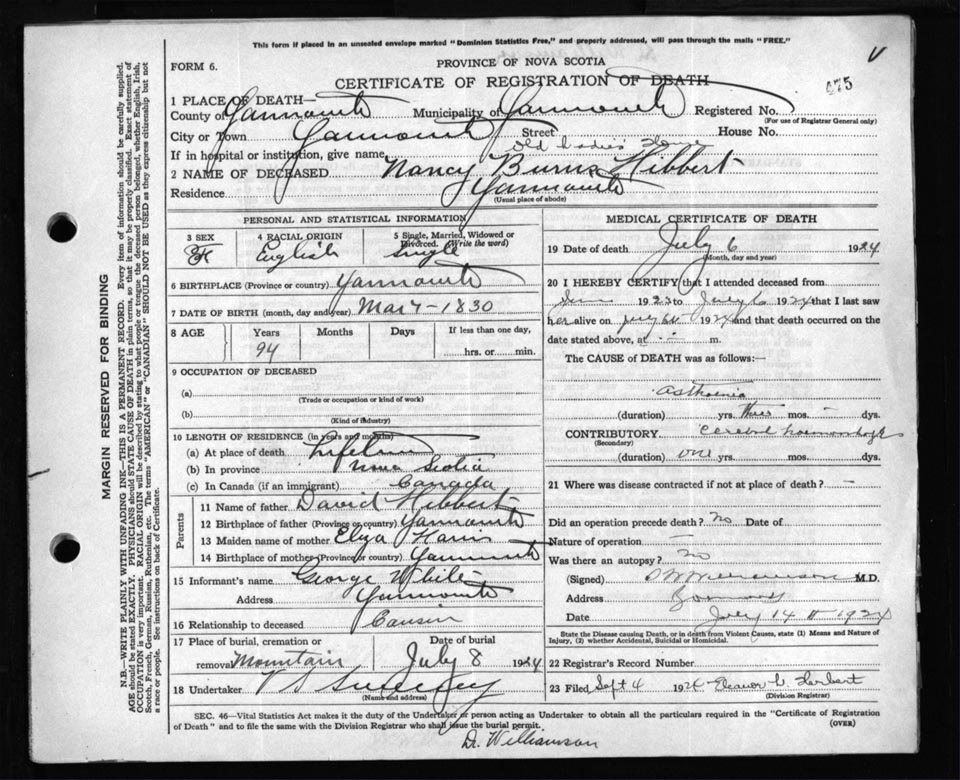 This form if placed in an unsealed envelope marked "Dominion Statistics Free," and properly addressed, will pass through the mails "FREE."
V
FORM 6.
PROVINCE OF NOVA SCOTIA
CERTIFICATE OF REGISTRATION OF DEATH
475
1 PLACE OF DEATH—
County of Yarmouth Municipality of Yarmouth Registered No.
(For use of Registrar General only)
City or Town Yarmouth Street House No.
If in hospital or institution, give name Old Ladies' Home
2 NAME OF DECEASED Nancy Burns Hibbert
Residence Yarmouth
(Usual place of abode)
PERSONAL AND STATISTICAL INFORMATION
3 SEX 4 RACIAL ORIGIN 5 Single, Married, Widowed or Divorced. (Write the word)
F English Single
6 BIRTHPLACE (Province or country) Yarmouth
7 DATE OF BIRTH (month, day and year) Mar 7 - 1830
8 AGE Years Months Days If less than one day,
94 hrs. or min.
9 OCCUPATION OF DECEASED
(a)
(Trade or occupation or kind of work)
(b)
(Kind of industry)
10 LENGTH OF RESIDENCE (in years and months)
(a) At place of death Lifetime
(b) In province Nova Scotia
(c) In Canada (if an immigrant) Canada
Parents
11 Name of father David Hibbert
12 Birthplace of father (Province or country) Yarmouth
13 Maiden name of mother Eliza Harris
14 Birthplace of mother (Province or country) Yarmouth
15 Informant's name George White
Address Yarmouth
16 Relationship to deceased Cousin
17 Place of burial, cremation or removal Mountain Date of burial July 8 1924
18 Undertaker V S Sweeney
(Name and address)
MEDICAL CERTIFICATE OF DEATH
19 Date of death July 6 1924
(Month, day and year)
20 I HEREBY CERTIFY that I attended deceased from
June 1923 to July 6 1924 that I last saw
her alive on July 6 1924 and that death occurred on
date stated above, at - m.
The CAUSE of DEATH was as follows:—
Asthenia
(duration) yrs. three mos. - dys.
CONTRIBUTORY Cerebral haemorrhage
(Secondary)
(duration) one yrs. mos. dys.
21 Where was disease contracted if not at place of death? -
Did an operation precede death? No Date of
Nature of operation -
Was there an autopsy? No
(Signed) Williamson M.D.
Address Yarmouth
Date July 14 1924
State the Disease causing Death, or in death from Violent Causes, state (1) Means and Nature of Injury, (2) whether Accidental, Suicidal or Homicidal.
22 Registrar's Record Number
23 Filed Sept 4 1924 Eleanor Herbert
(Division Registrar)
SEC. 46—Vital Statistics Act makes it the duty of the Undertaker or person acting as Undertaker to obtain all the particulars required in the "Certificate of Registration
of Death" and to file the same with the Division Registrar who shall issue the burial permit. (OVER)
Dr. Williamson
MARGIN RESERVED FOR BINDING
N.B.—WRITE PLAINLY WITH UNFADING INK—THIS IS A PERMANENT RECORD. Every item of information should be carefully supplied.
AGE should be stated EXACTLY. PHYSICIANS should STATE CAUSE OF DEATH in plain terms, so that it may be properly classified. Exact statement of
OCCUPATION is very important. RACIAL ORIGIN will be described by stating to what people or tongue the deceased person belonged, whether English, Irish,
Scotch, French, German, Russian, Ruthenian, etc. The terms "AMERICAN" or "CANADIAN" SHOULD NOT BE USED as they express citizenship but not
a race or people. See instructions on back of Certificate.